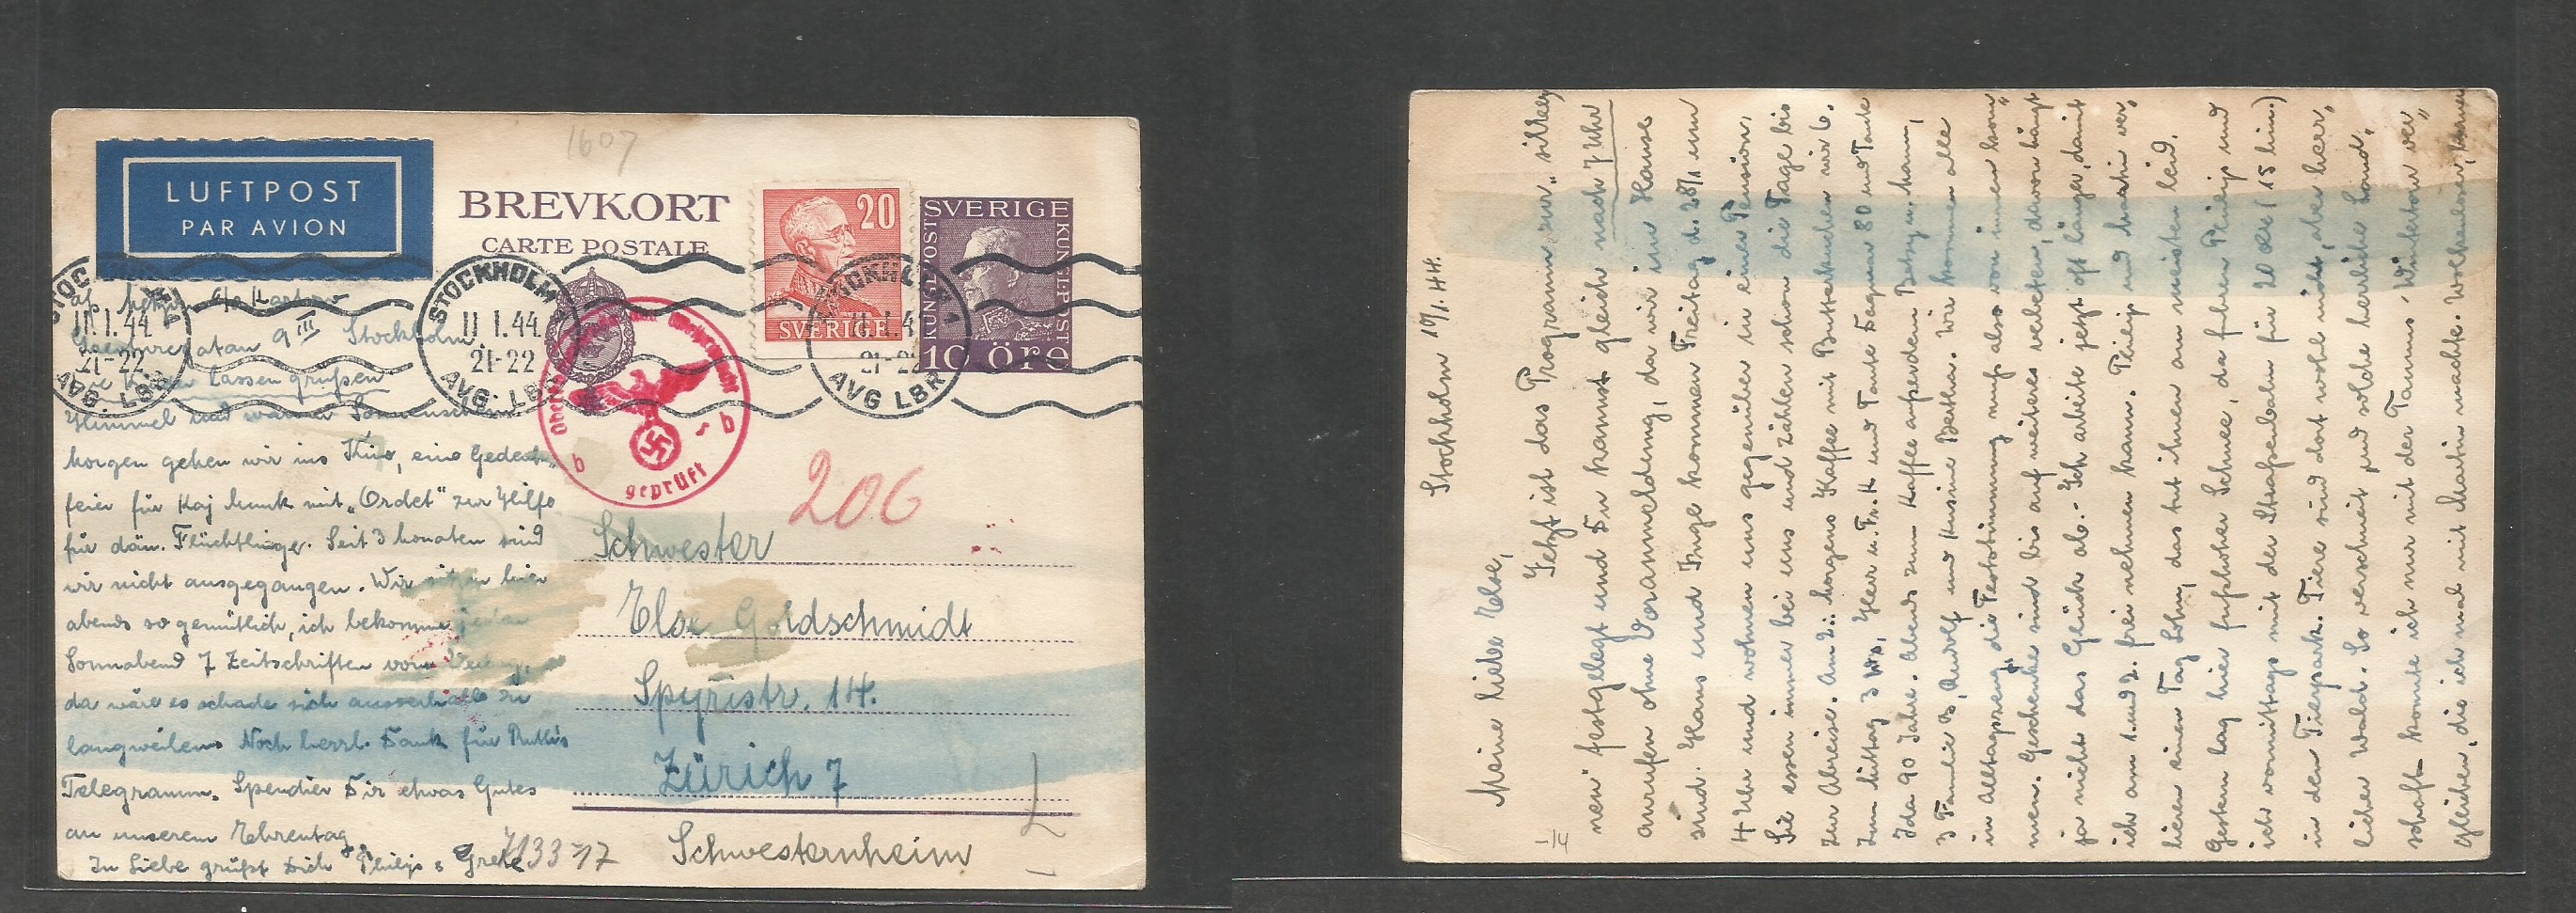 1607
LUFTPOST
PAR AVION
BREVKORT
CARTE POSTALE
20
SVERIGE
SVERIGE
KUNGL·POST
KUNGL·POST
10 öre
STOCKHOLM 1
11.1.44
21-22
AVG. LBR
STOCKHOLM
11.1.44
21-22
AVG. LBR
STOCKHOLM 1
21-22
AVG LBR
geprüft
b
b
206
9 III Stockholm
Kinder lassen grüßen
Himmel und warmer Sonnenschein
Morgen gehen wir ins Kino, eine Gedenk„
feier für Kaj Munk mit „Ordet" zur Hilfe
für dän. Flüchtlinge. Seit 3 Monaten sind
wir nicht ausgegangen. Wir sitzen hier
abends so gemütlich, ich bekomme jeden
Sonnabend 7 Zeitschriften vom
da wäre es schade sich ausserhalb zu
langweilen. Noch herzl. Dank für Ruth's
Telegramm. Spendier Dir etwas Gutes
an unserem Ehrentag.
In Liebe grüßt Dich Philip & Grete
Schwester
Else Goldschmidt
Spyristr. 14.
Zürich 7
Schwesternheim
Stockholm 10/1.44.
Meine liebe Else,
Jetzt ist das Programm zur „silber
nen" festgelegt und Du kannst gleich nach 7 Uhr
anrufen ohne Voranmeldung, da wir im Hause
sind. Hans und Inge kommen Freitag d. 28/1 um
4 Uhr und wohnen uns gegenüber in einer Pension.
Sie essen immer bei uns und zählen schon die Tage bis
zur Abreise. Am 2. morgens Kaffee mit Butterkuchen wir 6.
Zum Mittag 3 Herr u. Fr. K und Tante Dagmar 80 und Tante
Ida 90 Jahre. Abends zum Kaffee ausserdem Betzy u. Mann,
3 Familie B, Rudolf und Kusine Bertha. Wir können alle
im Alltagszeug, die Feststimmung muß also von innen kom„
men. Geschenke sind bis auf weiteres verbeten, davon hängt
ja nicht das Glück ab. - Ich arbeite jetzt oft länger, damit
ich am 1. und 2. frei nehmen kann. Philip und Martin ver„
lieren einen Tag Lohn, das tut ihnen am meisten leid.
Gestern lag hier fußhoher Schnee, da fuhren Philip und
ich vormittags mit der Straßenbahn für 20 öre (15 hin.)
in den Tierpark. Tiere sind dort wohl nicht, aber herr„
licher Wald. So verschneit und solche herrliche Land„
schaft konnte ich nur mit der Taunus-Wintertour ver„
gleichen, die ich mal mit Martin machte. Wolkenloser, blauer
-/4